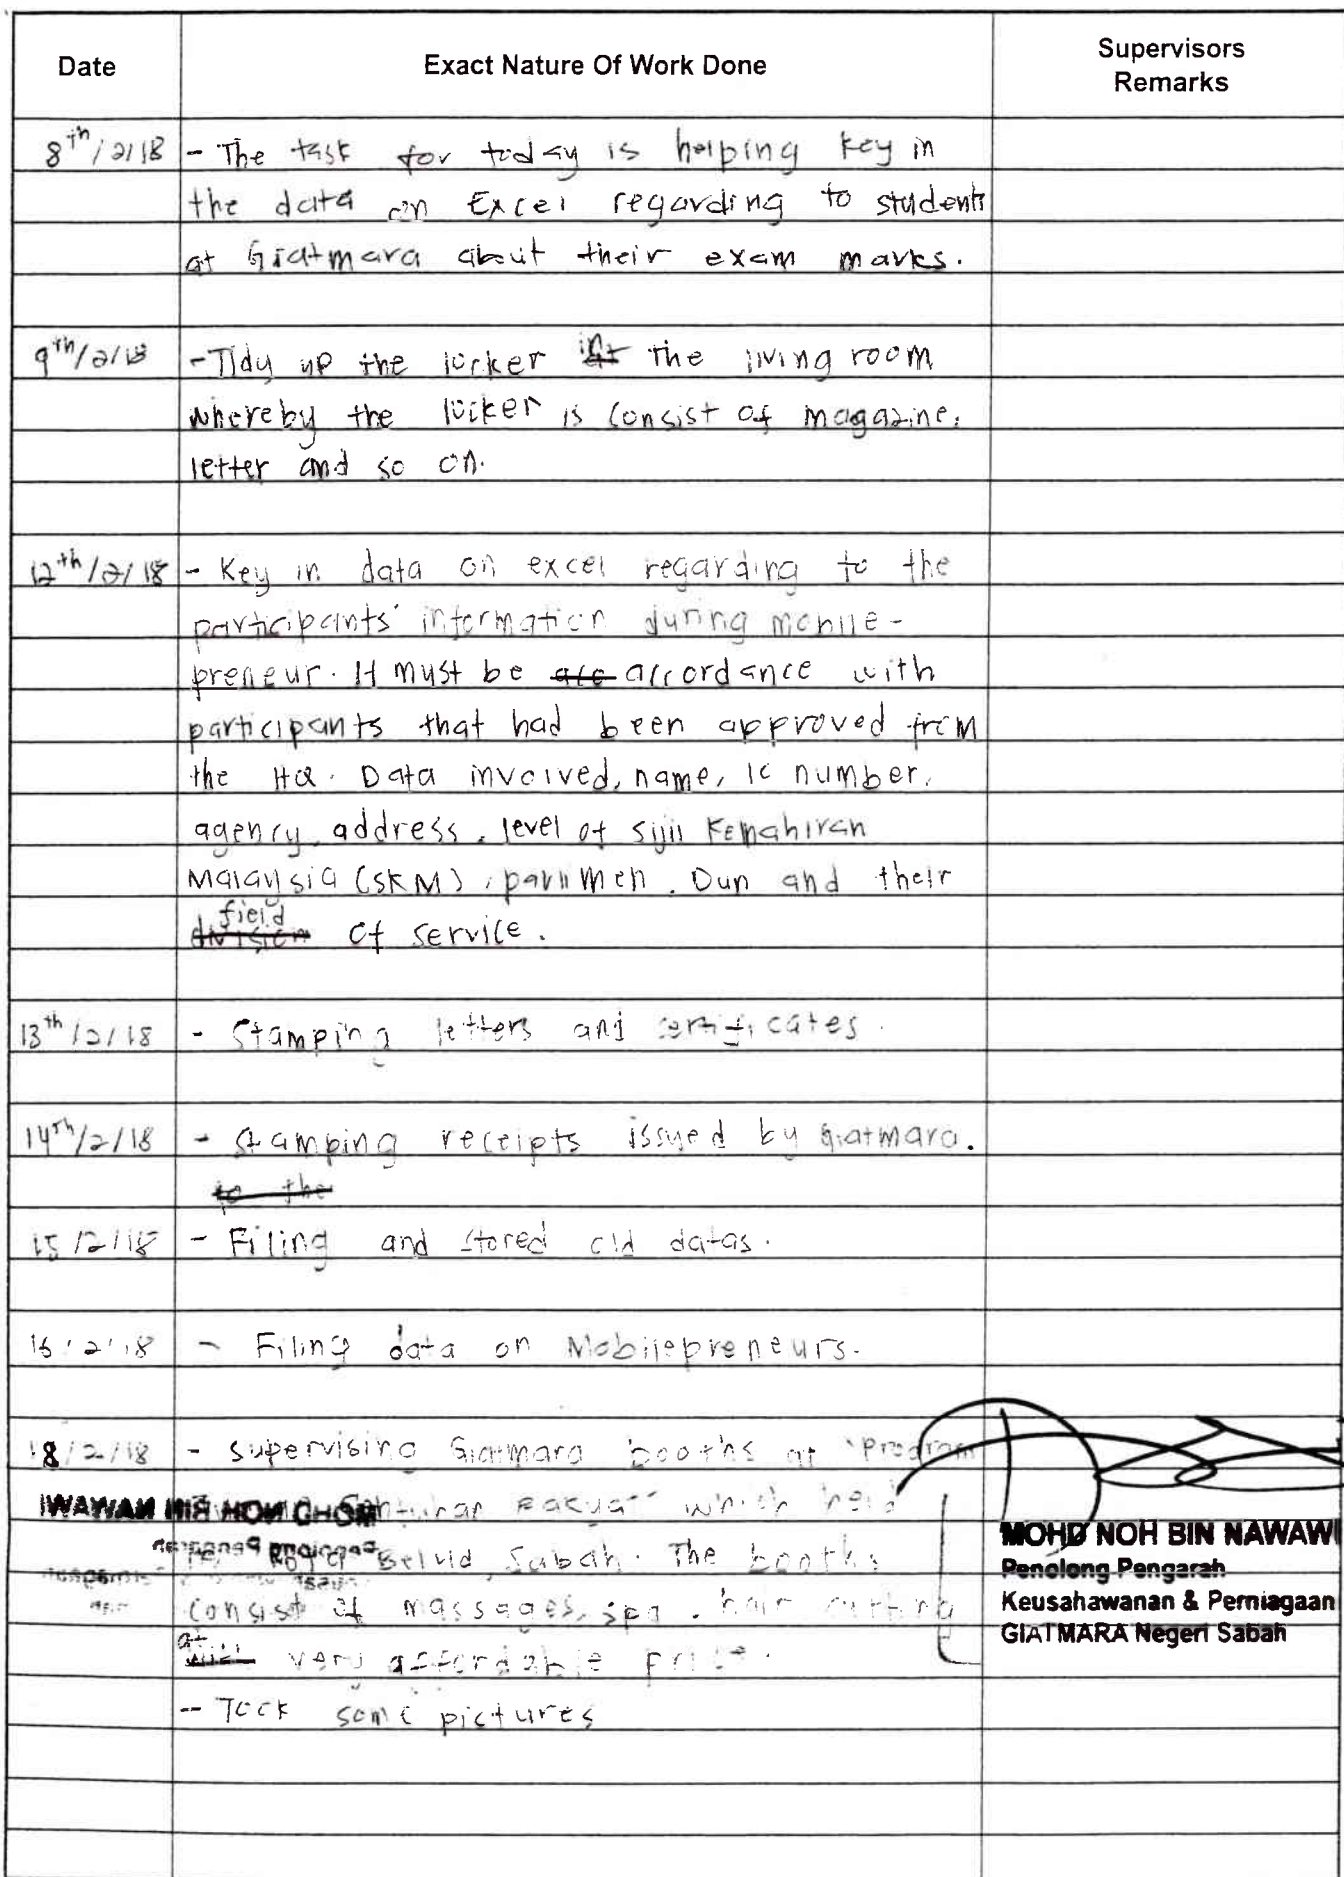 Date Exact Nature Of Work Done Supervisors Remarks
8th/2/18 - The task for today is helping key in
the data on Excel regarding to students
at Giatmara about their exam marks.
9th/2/18 - Tidy up the locker in the living room
whereby the locker is consist of magazine,
letter and so on.
12th/2/18 - Key in data on excel regarding to the
participants' information during mobile-
preneur. It must be acc accordance with
participants that had been approved from
the HQ. Data involved, name, ic number,
agency, address, level of Sijil Kemahiran
Malaysia (SKM), parlimen, Dun and their
field
division of service.
13th/2/18 - Stamping letters and certificates.
14th/2/18 - Stamping receipts issued by Giatmara.
to the
15/2/18 - Filing and stored old datas.
16/2/18 - Filing data on Mobilepreneurs.
18/2/18 - Supervising Giatmara booths at "Program
Rakyat" which held
Belud, Sabah. The booths
consist of massages, spa, hair cutting
at
very affordable price.
-- Took some pictures
MOHD NOH BIN NAWAWI
Penolong Pengarah
Keusahawanan & Perniagaan
GIATMARA Negeri Sabah
MOHD NOH BIN NAWAWI
Penolong Pengarah